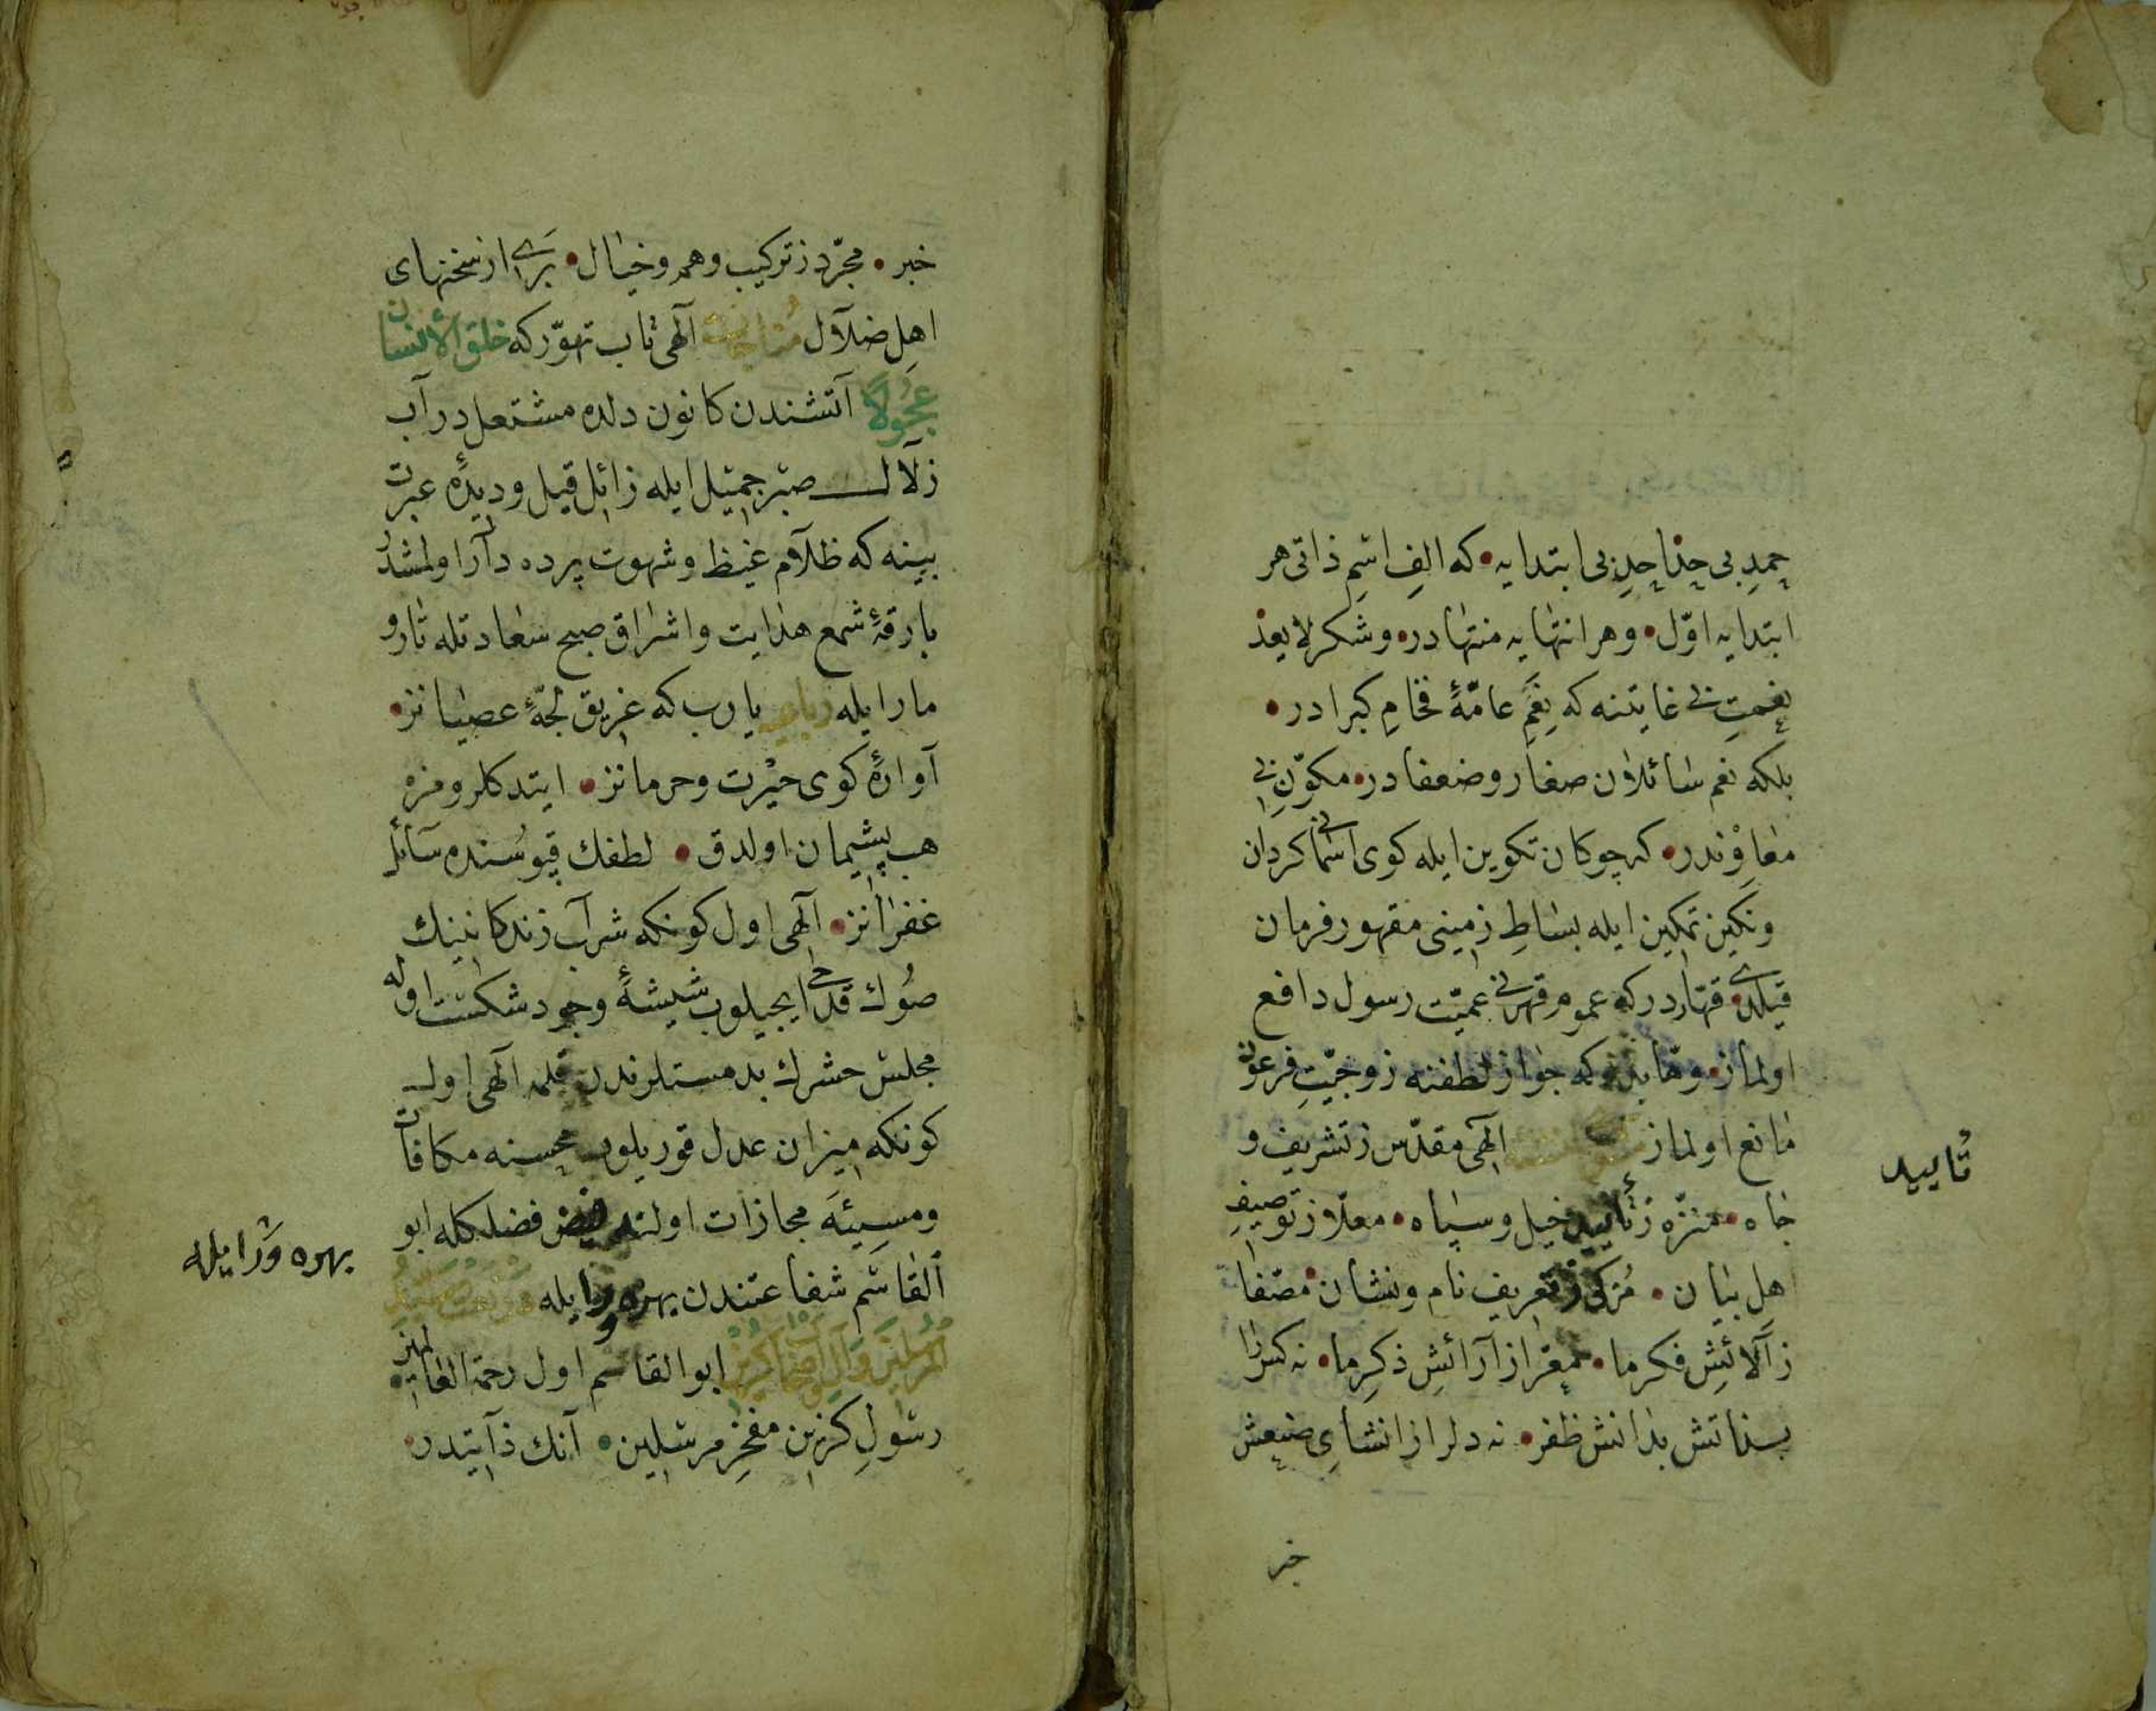 حمدِ بی حد احدِ بی ابتدایه که الفِ اسمِ ذاتی هر
ابتدایه اوّل وهر انتهایه منتهادر وشکر لا یعد
نعمتِ بی غایتنه که نِعَمِ عامّۀ فخامِ کبرادر
بلکه نعم سائلان صغار وضعفادر مکوّنِ بی
معاوندر که چوکان تکوین ایله کوی اسمانی کردان
ونکین تمکین ایله بساطِ زمینی مقهور فرمان
قیلدی قهاردر که عموم قهرنی عمیّت رسول دافع
اولماز وهابدر که جواز لطفنه زوجیّتِ فرعون
مانع اولماز الهی مقدّس ز تشریف و
جاه منزّه ز تأیید خیل وسپاه معلّا ز توصیفِ
اهلِ بیان مُزکّی ز تعریف نام ونشان مصفّا
ز آلائشِ فکرِ ما معرّا از آرائشِ ذکرِ ما نه کس را
بذاتش بدانش ظفر نه دلرا از انشایِ صنعش
تأیید
خبر
خبر مجرّد ز ترکیب وهم وخیال بری از سخنهای
اهلِ ضلال مناجات الهی تاب تهوّر که خلق الانسان
عجولاً آتشندن کانون دلده مشتعلدر آب
زلال صبر جمیل ایله زائل قیل ودیدۀ عبرت
بینه که ظلام غیظ وشهوت پرده دار اولمشدر
بارقۀ شمع هدایت واشراق صبح سعادتله تار و
مار ایله رباعی یارب که غریق لجّۀ عصیانز
آوارۀ کوی حیرت وحرمانز ایتدکلرومزه
هب پشیمان اولدق لطفك قپوسنده سائل
غفرانز الهی اول کونکه شراب زندکانینك
صوك قدحی ایچیلوب شیشۀ وجود شکست اوله
مجلس حشرك بدمستلرندن قلمه الهی اول
کونکه میزان عدل قوریلوب محسنه مکافات
ومسیئه مجازات اولنه فیض فضلکله ابو
القاسم شفاعتندن بهره ور ایله
ابو القاسم اول رحمة العالمین
رسولِ کزین مفخرِ مرسلین آنك ذاتیدر
بهره وَر ایله